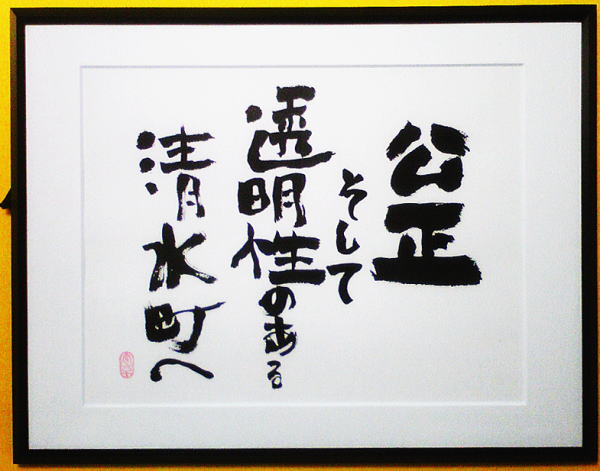 公正
そして
透明性のある
清水町へ